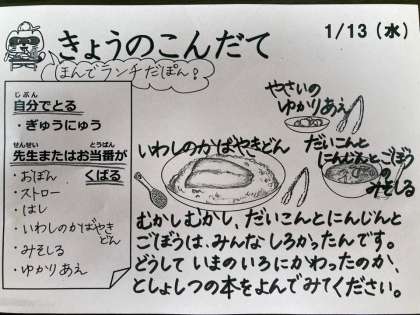 きょうのこんだて
1/13（水）
まんてんランチだぽん！
じぶん
自分でとる
・ぎゅうにゅう
せんせい とうばん
先生またはお当番が
くばる
・おぼん
・ストロー
・はし
・いわしのかばやき
どん
・みそしる
・ゆかりあえ
やさいの
ゆかりあえ
いわしのかばやきどん
だいこんと
にんじんとごぼう
の
みそしる
むかしむかし、だいこんとにんじんと
ごぼうは、みんなしろかったんです。
どうしていまのいろにかわったのか、
としょしつの本をよんでみてください。